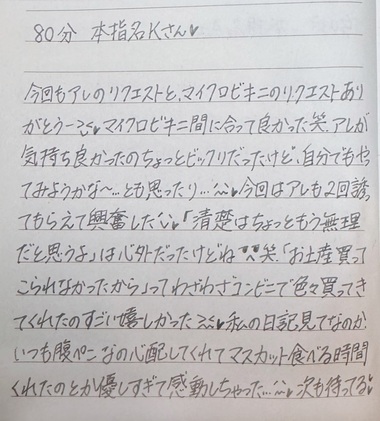 80分 本指名Kさん♥
今回もアレのリクエストと、マイクロビキニのリクエストあり
がとう〜♥マイクロビキニ間に合って良かった笑 アレが
気持ち良かったのちょっとビックリだったけど、自分でもやっ
てみようかな〜…とも思ったり…今回はアレも2回
てもらえて興奮した「清楚はちょっともう無理
だと思うよ」は心外だったけどね 笑「お土産買って
こられなかったから」ってわざわざコンビニで色々買ってき
てくれたのすごい嬉しかった 私の日記見てなのか、
いつも腹ペコなの心配してくれてマスカット食べる時間
くれたのとか優しすぎて感動しちゃった… 次も待ってる♥